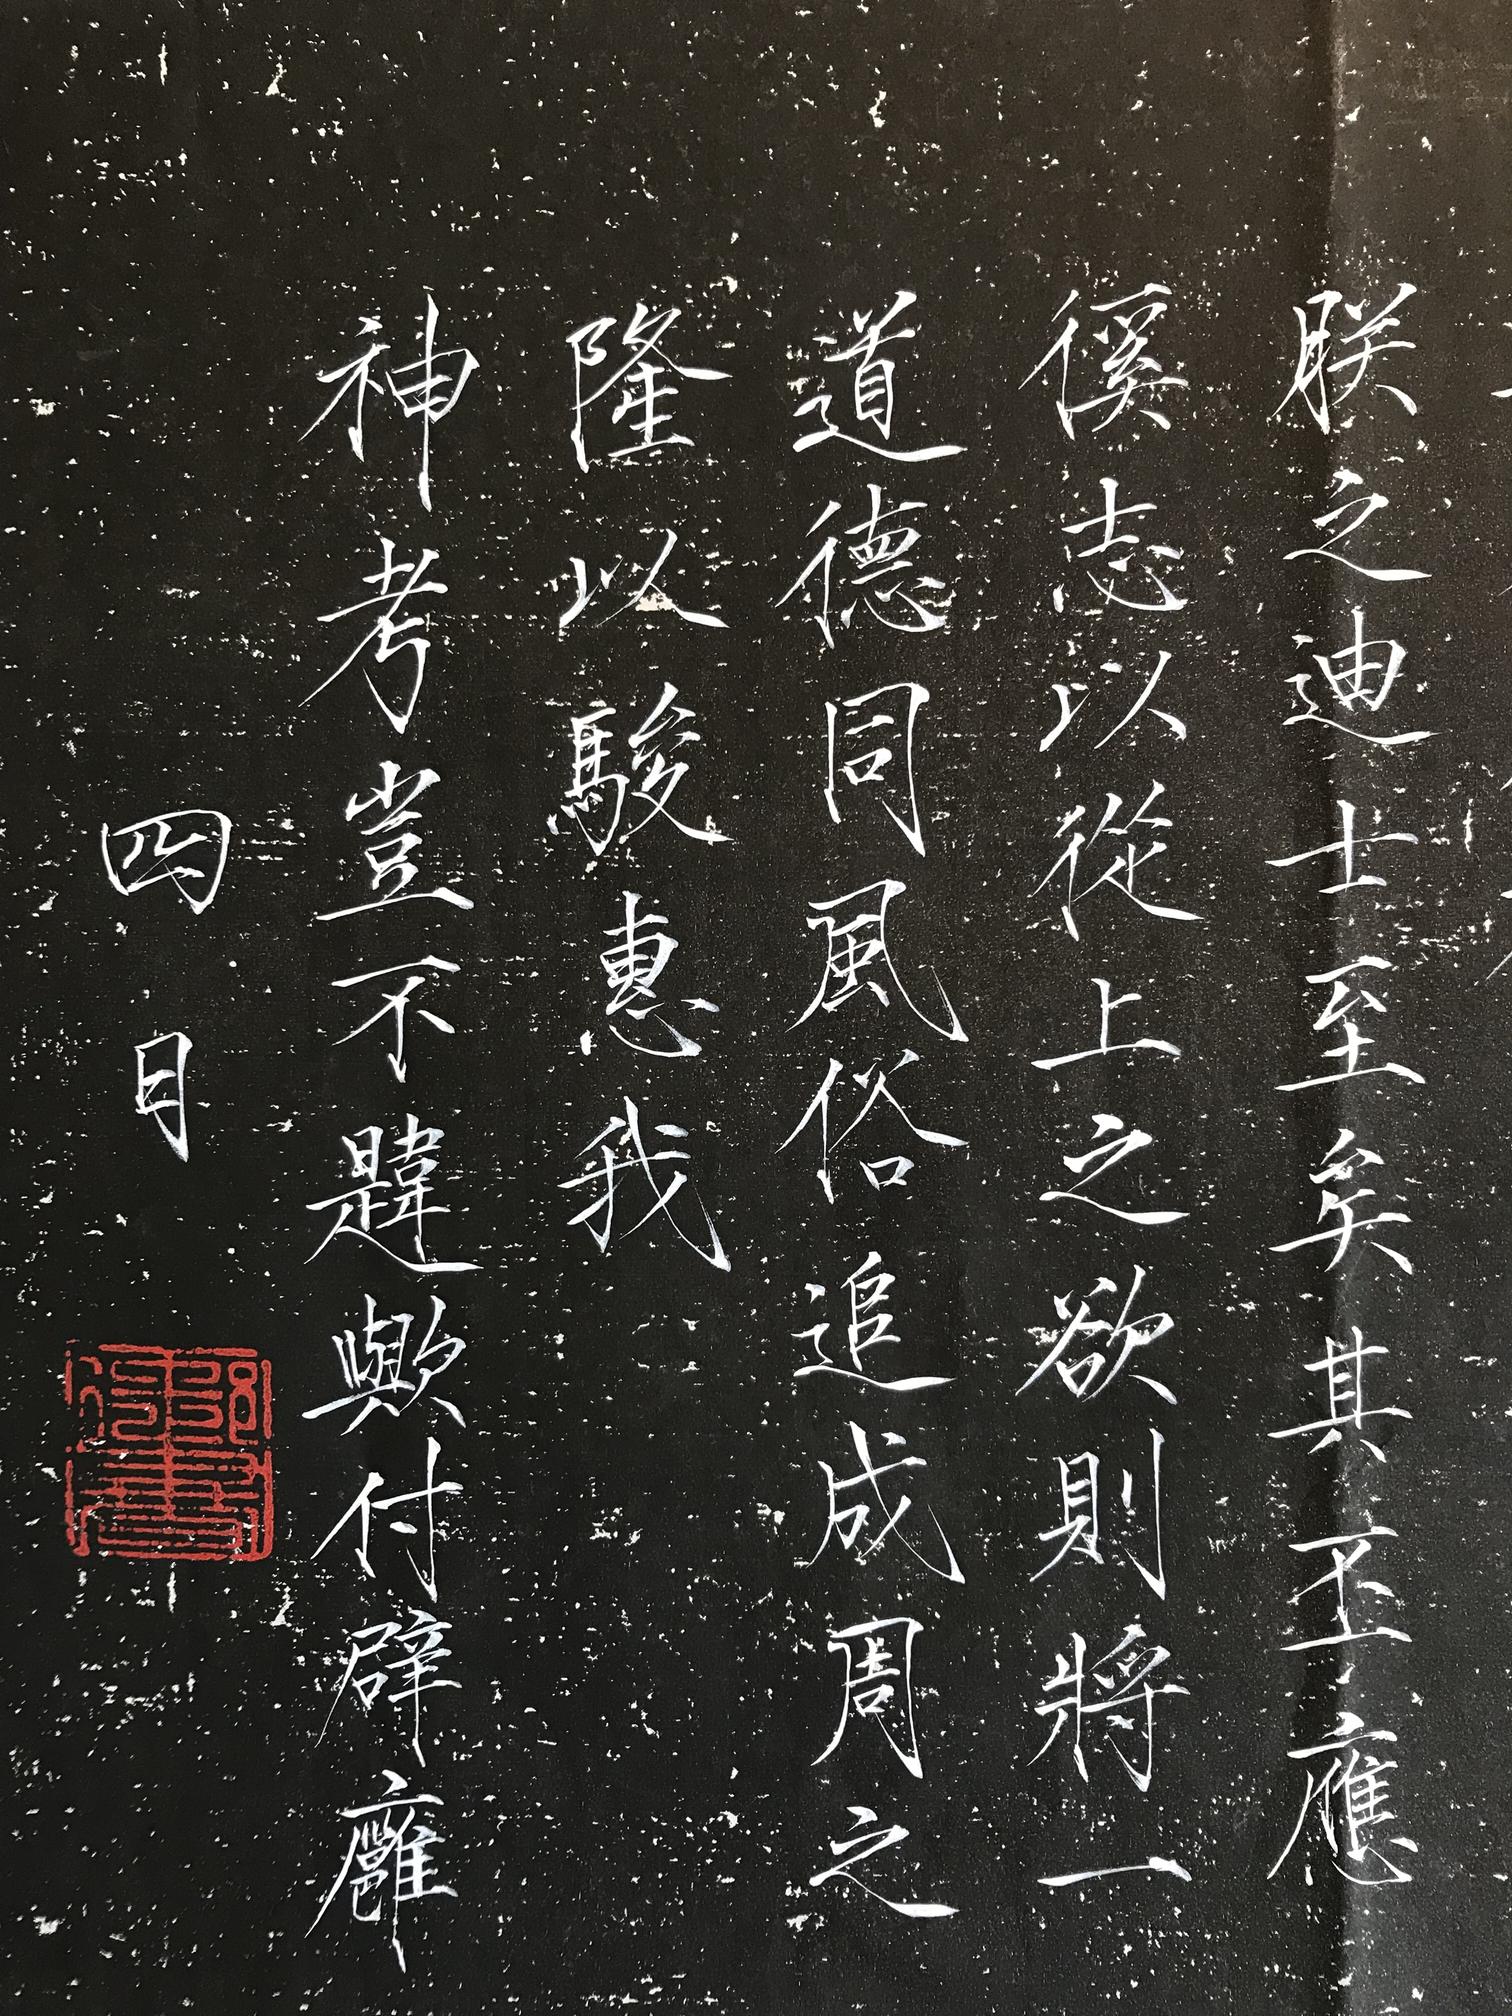 朕之迪士至矣其丕應
徯志以從上之欲則將一
道德同風俗追成周之
隆以駿惠我
神考豈不韙歟付辟廱
四月